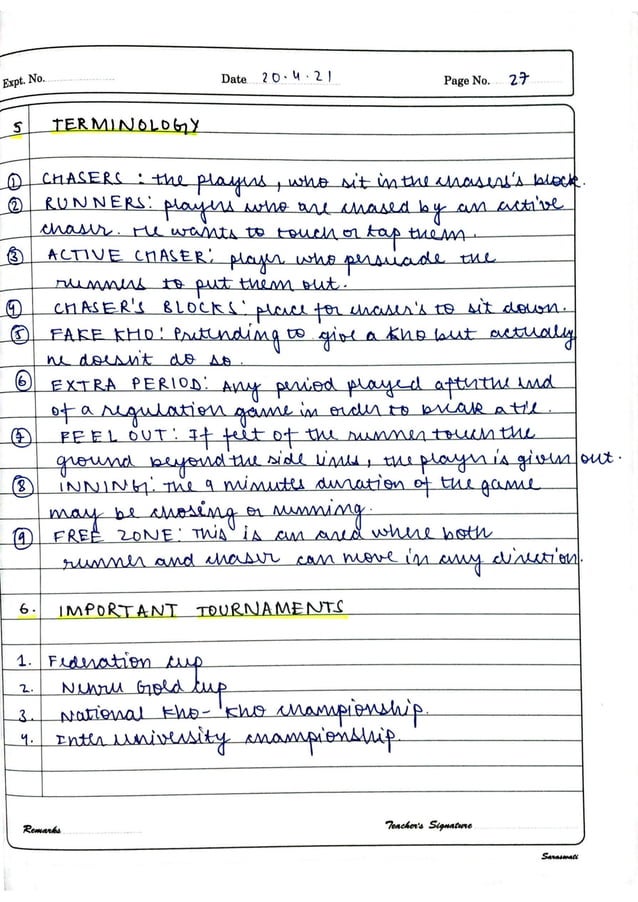 Expt. No. Date 20.4.21 Page No. 27
5 TERMINOLOGY
① CHASERS : the players, who sit in the chasers's block.
② RUNNERS: players who are chased by an active
chaser. He wants to touch or tap them.
③ ACTIVE CHASER: player who persuade the
runners to put them out.
④ CHASER'S BLOCKS: place for chaser's to sit down.
⑤ FAKE KHO: Pretending to give a kho but actually
he doesn't do so.
⑥ EXTRA PERIOD: Any period played after the end
of a regulation game in order to break a tie.
⑦ FEEL OUT: If feet of the runner touch the
ground beyond the side lines, the player is given out.
⑧ INNING: The 9 minutes duration of the game
may be chosing or running.
⑨ FREE ZONE: This is an area where both
runner and chaser can move in any direction.
6. IMPORTANT TOURNAMENTS
1. Federation cup
2. Nehru Gold cup
3. National Kho-Kho championship.
4. Inter University championship.
Remarks Teacher's Signature
Saraswati